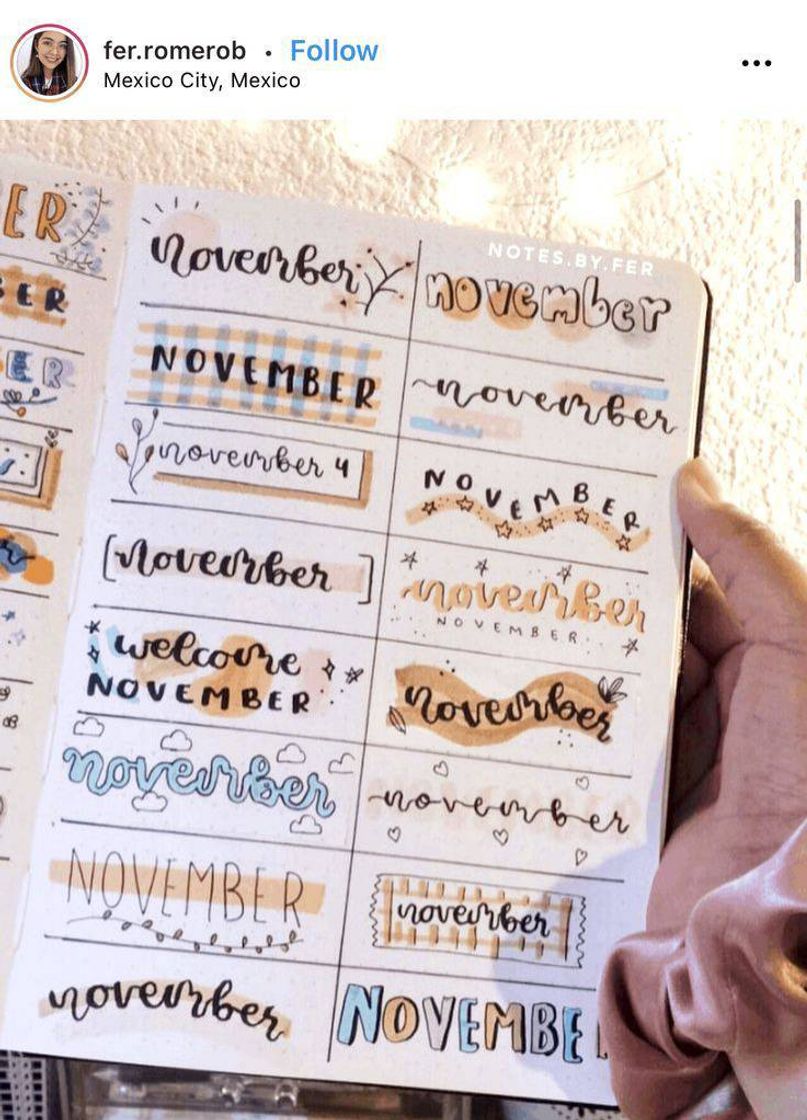 fer.romerob • Follow
Mexico City, Mexico
NOTES.BY.FER
ER
BER
BER
november
november
NOVEMBER
november
november 4
NOVEMBER
november
november
NOVEMBER
welcome
NOVEMBER
november
november
november
NOVEMBER
november
november
NOVEMBE